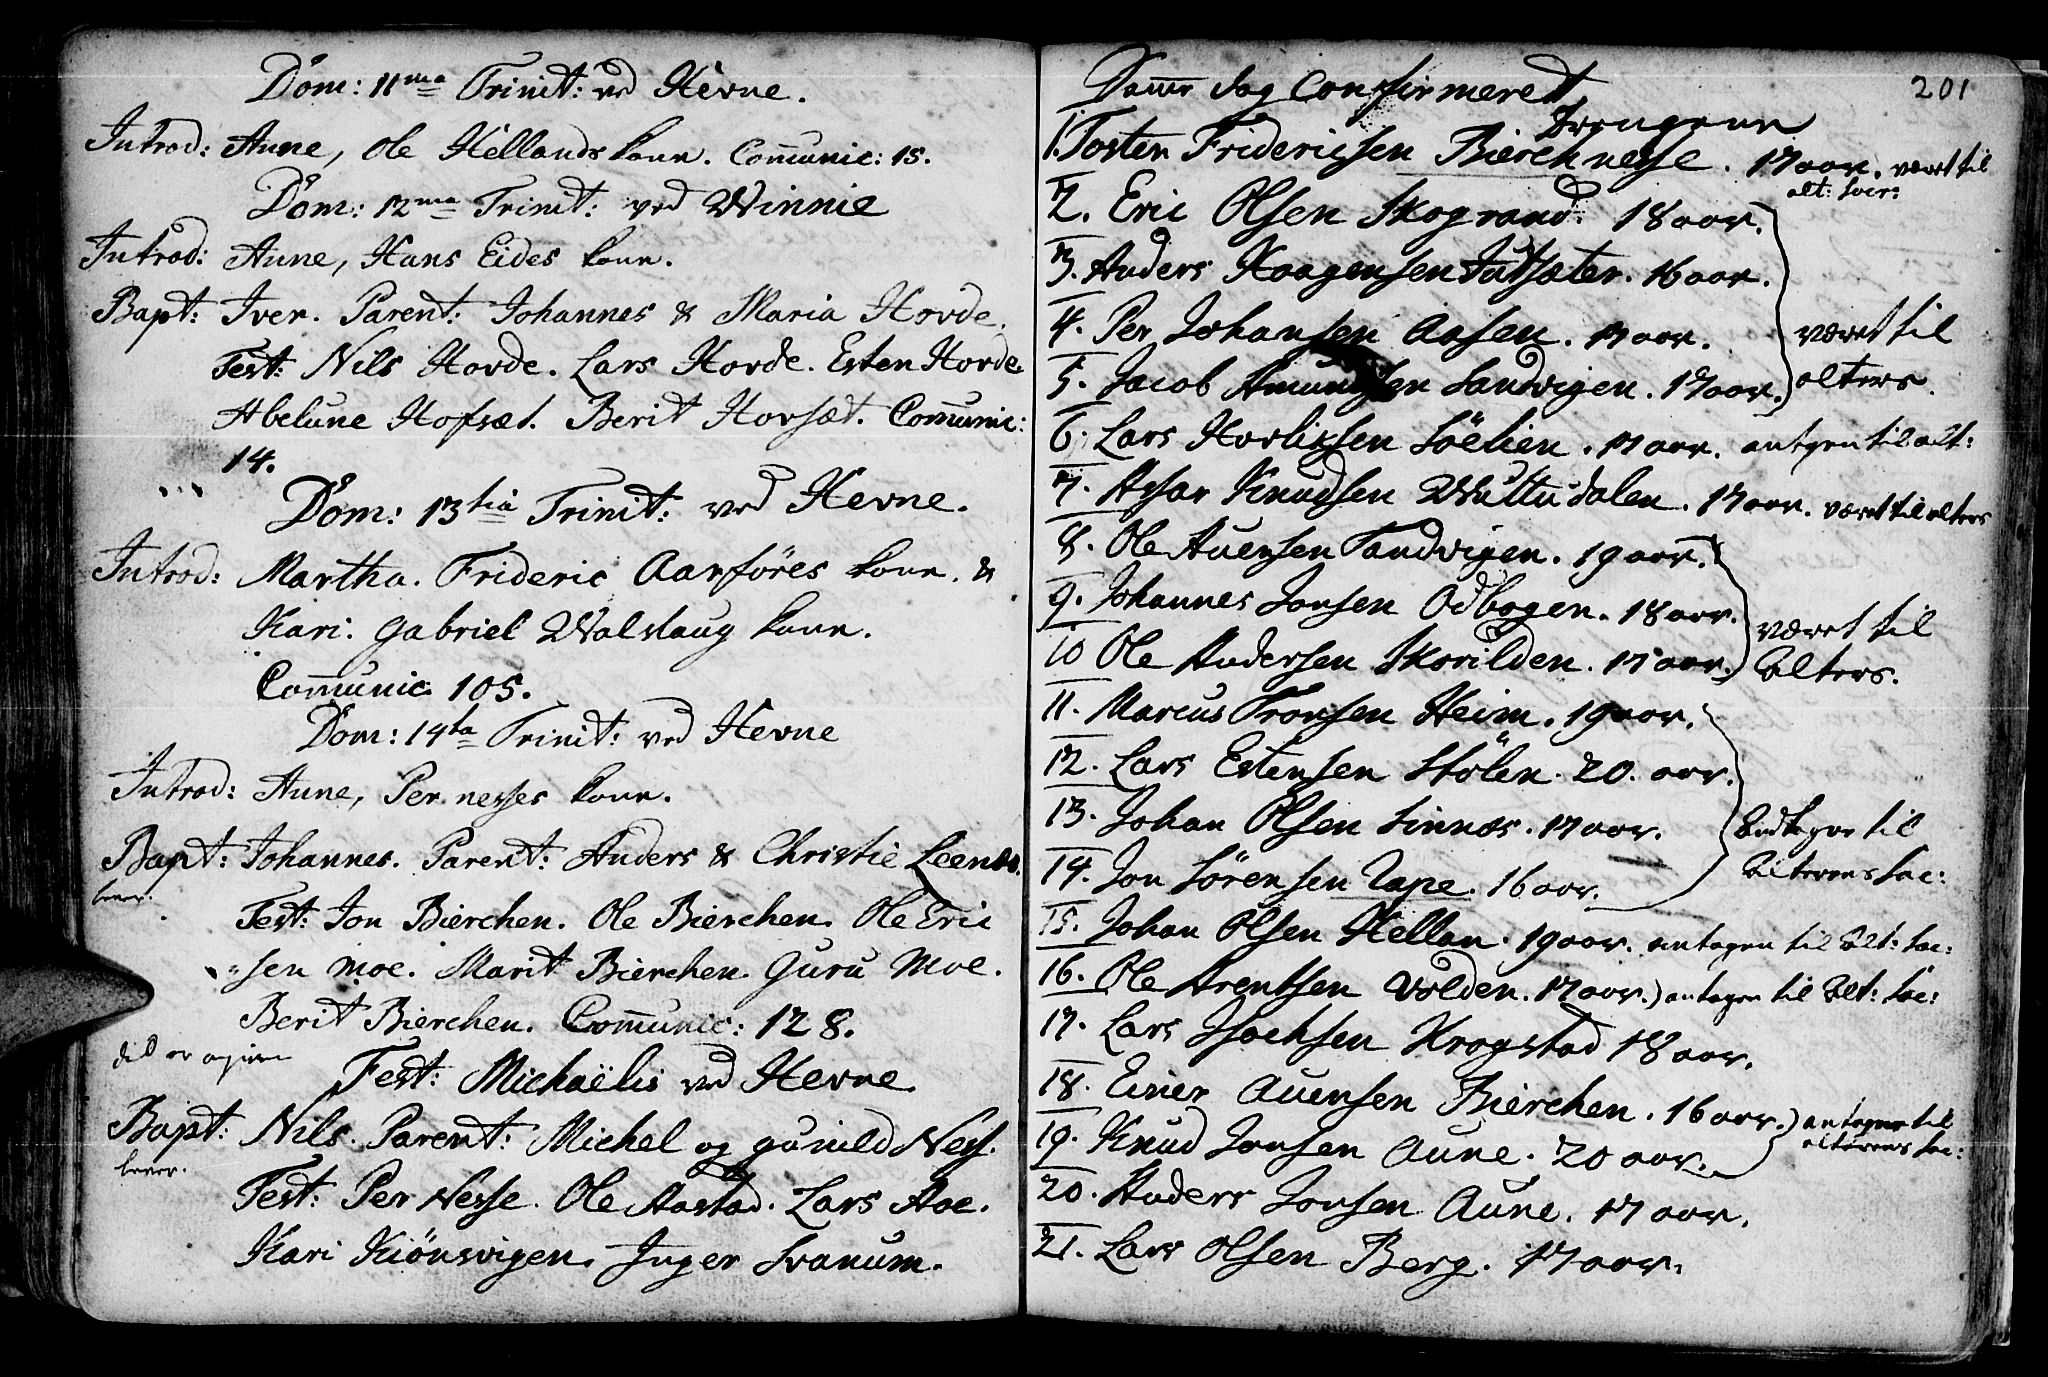 Dom: 11ma Trinit: ved Hevne.
Introd: Anne, Ole Hellands kone. Comunic: 15.
Dom: 12ma Trinit: ved Winnie
Introd: Anne, Hans Eides kone.
Bapt: Iver. Parent: Johannes & Maria Hovde.
Test: Nils Hovde. Lars Hovde. Esten Hovde.
Abelune Hofsæt. Berit Hovsæt. Comunic:
14.
Dom: 13tia Trinit: ved Hevne.
Introd: Martha. Frideric Aarföres kone. &
Kari. Gabriel Walslaug kone.
Comunic 105.
Dom: 14ta Trinit: ved Hevne
Introd: Anne, Per nesses kone.
Bapt: Johannes. Parent: Anders & Christie Leenæs.
lever.
Test: Jon Bierchen. Ole Bierchen. Ole Eric
sen Moe. Marit Bierchen. Guru Moe.
Berit Bierchen. Comunic: 128.
Fest: Michaëlis ved Hevne
Bapt: Nils. Parent: Michel og gunild Ness.
lever.
Test: Per Nesse. Ole Aastad. Lars Aae.
Kari Kiönsvigen. Inger Svanum.
201
Samme dag Confirmeret
Drengene
1. Tosten Fridericsen Bierchnesse. 17 aar. været til
alt: sacr:
2. Eric Olsen Skogrand. 18 aar.
3. Anders Haagensen Jutsæter. 16 aar.
4. Per Johansen Aasen. 17 aar. været til
5. Jacob Amundsen Sandvigen. 17 aar. alters.
6. Lars Horliksen Söelien. 17 aar. antgen til alt:
7. Assar Knudsen Wuttudalen. 17 aar. været til alters
8. Ole Auensen Sandvigen. 19 aar.
9. Johannes Jonsen Odbogen. 18 aar. været til
10 Ole Andersen Skorilden. 17 aar. Alters.
11. Marcus Tronsen Heim. 19 aar.
12. Lars Estensen Stölen. 20. aar.
13. Johan Olsen Sinnæs. 17 aar. Andtagne til
14. Jon Sörensen Tape. 16 aar. Alterens Sac:
15. Johan Olsen Hellan. 19 aar. antagen til Alt: Sac:
16. Ole Arentsen Volden. 17 aar.) antagen til Alt: Sac:
17. Lars Isachsen Krogstad 18 aar.
18. Einer Auensen Bierchen. 16 aar. antagne til
19. Knud Jonsen Aune. 20 aar. alterens Sac:
20. Anders Jonsen Aune. 17 aar.
21. Lars Olsen Berg. 17 aar.